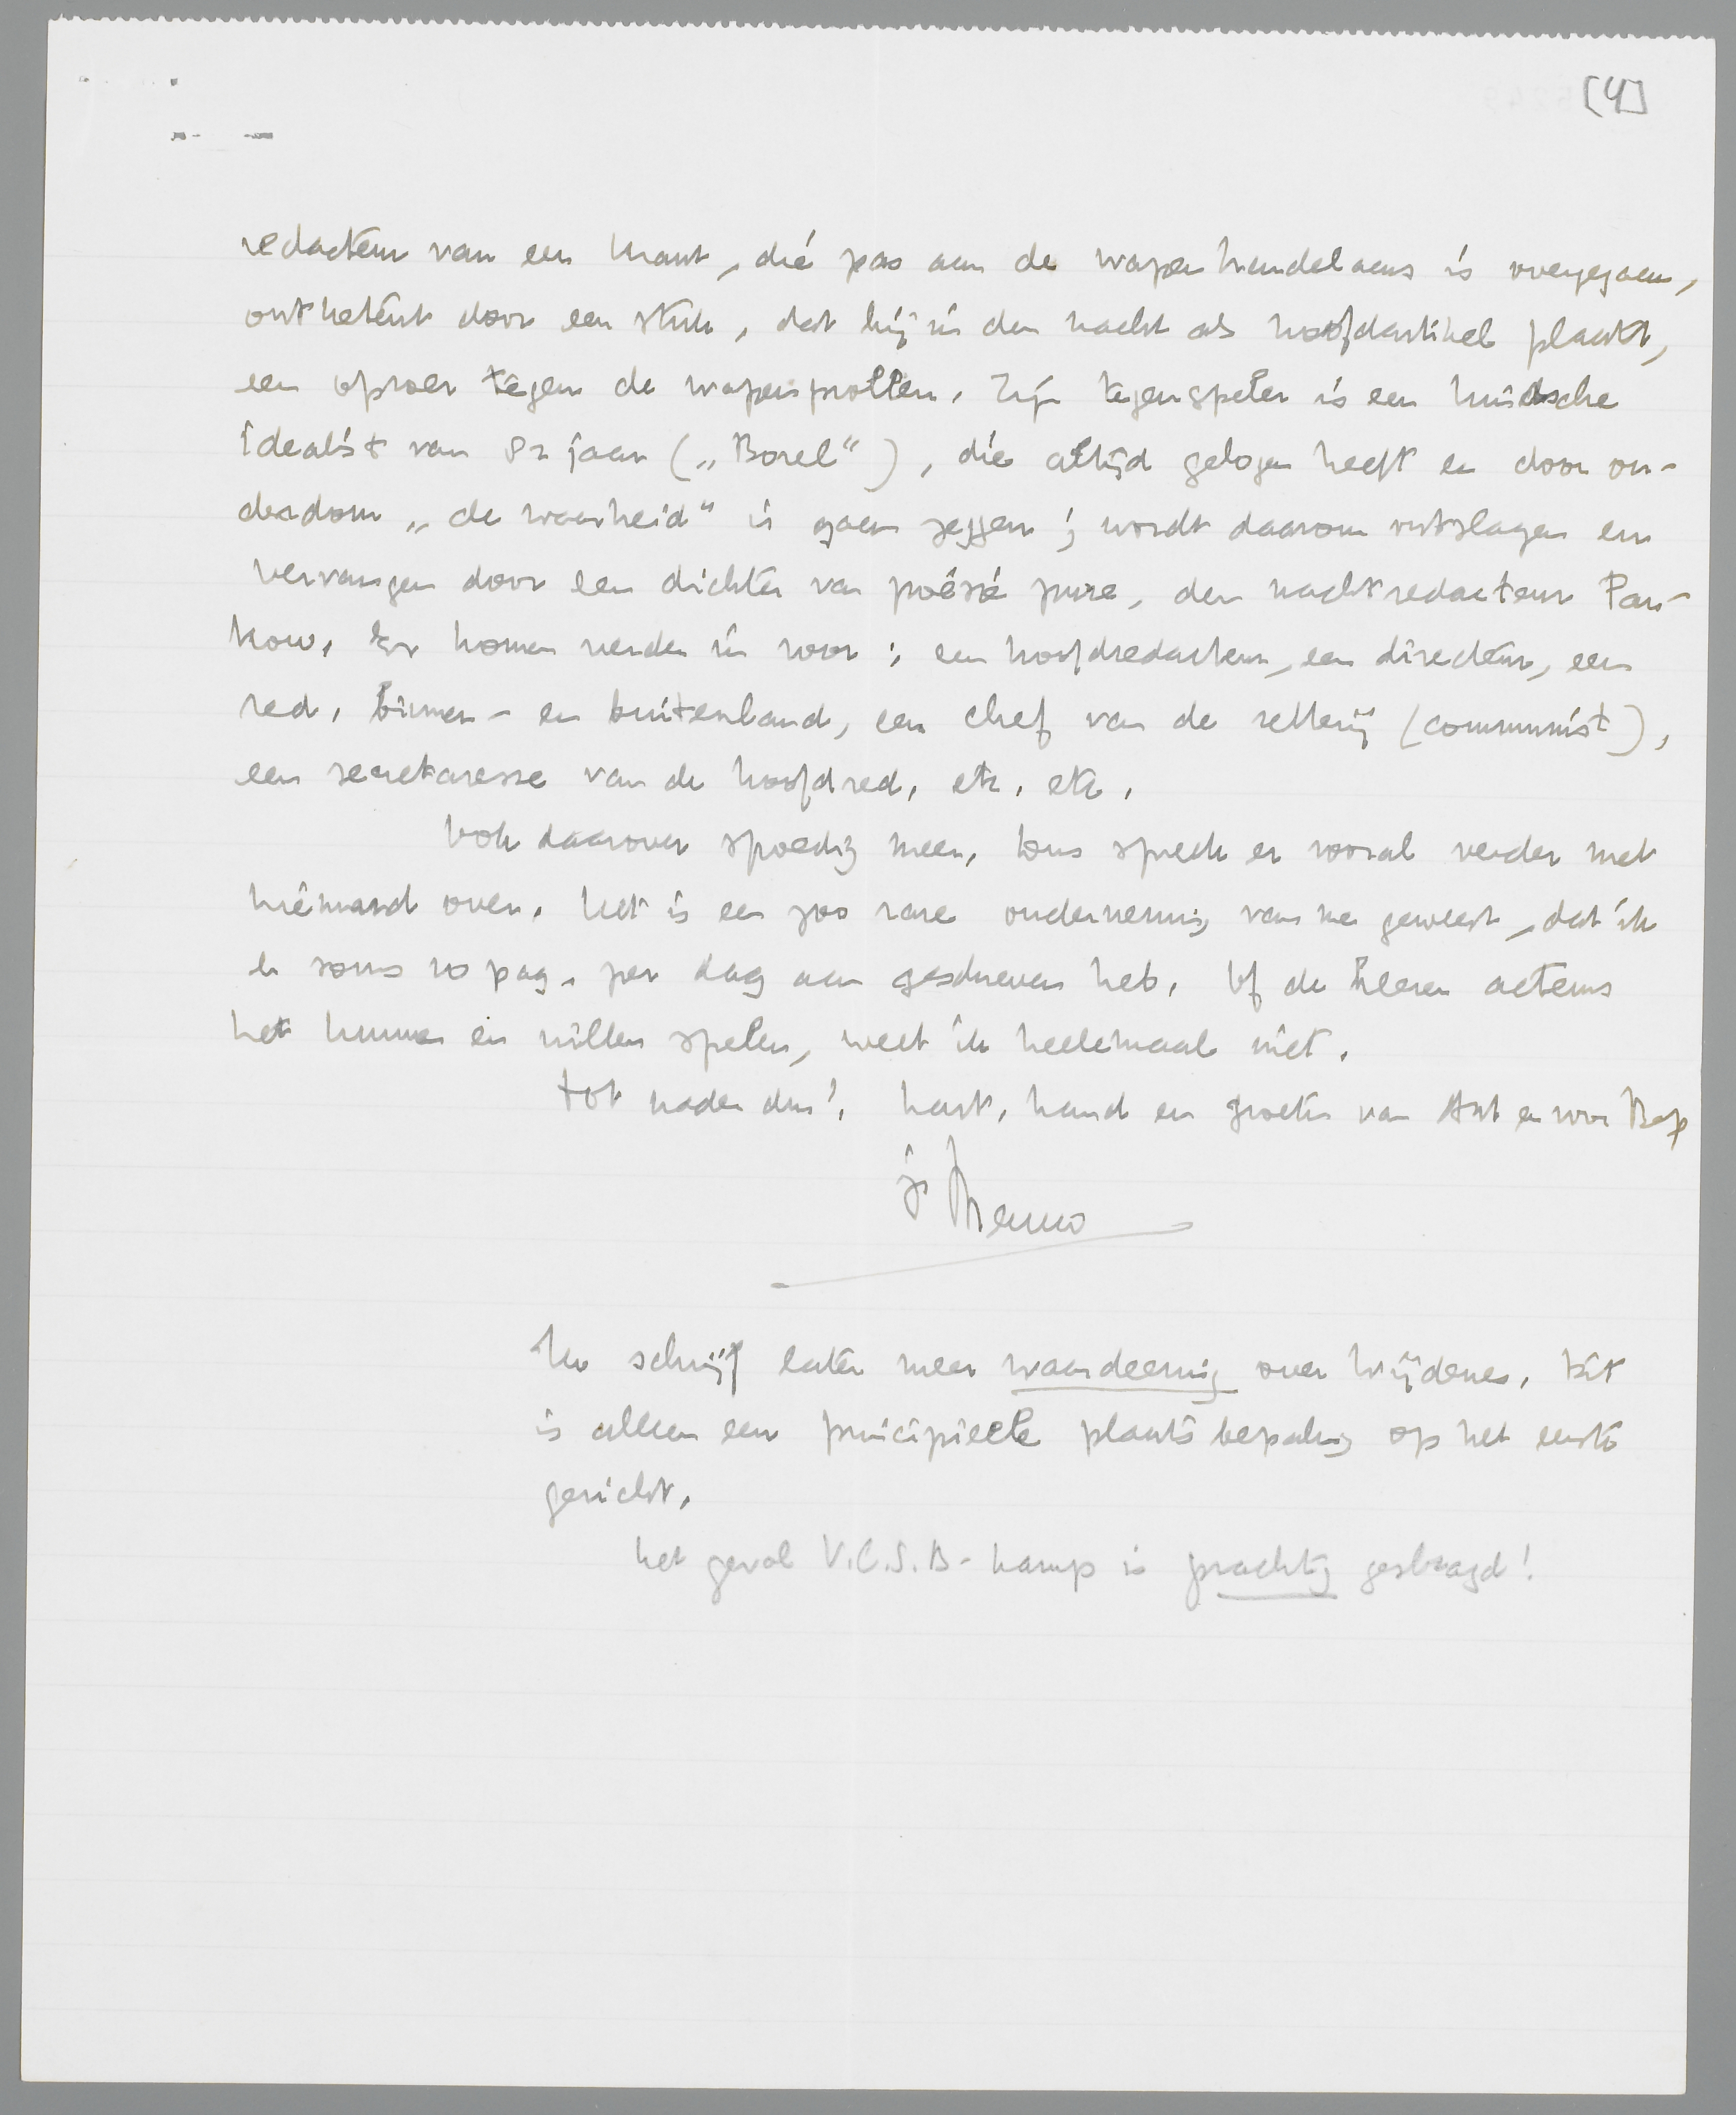 [4]
redacteur van een krant, die pas aan de wapenhandelaars is overgegaan,
ontketent door een stuk, dat hij in den nacht als hoofdartikel plaatst,
een oproer tegen de wapensmotten. Zijn tegenspeler is een kindsche
idealist van 82 jaar („Borel”), die altijd gelogen heeft en door ou-
derdom „de waarheid” is gaan zeggen; wordt daarom ontslagen en
vervangen door een dichter van poésie pure, den nachtredacteur Pan-
kow. Er komen verder in voor: een hoofdredacteur, een directeur, een
red. binnen- en buitenland, een chef van de zetterij (communist),
een secretaresse van de hoofdred. etc. etc.
Ook daarover spoedig meer. Dus spreek er vooral verder met
niemand over. Het is een zoo rare onderneming van me geweest, dat ik
er soms 10 pag. per dag aan geschreven heb. Of de heeren acteurs
het kunnen en willen spelen, weet ik heelemaal niet.
Tot nader dus! hart. hand en groeten van Ant en voor Bep
je Menno
Ik schrijf later meer waardeering over Wijdenes. Dit
is alleen een principieele plaatsbepaling op het eerste
gezicht.
Het geval V.C.S.B-kamp is prachtig geslaagd!